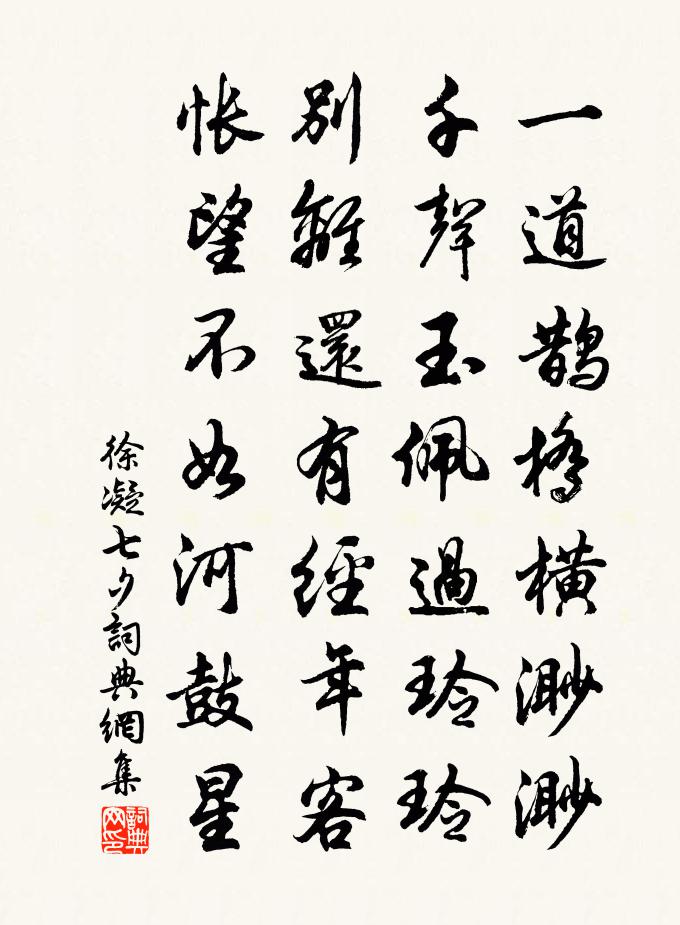 一道鹊橋橫渺渺
千聲玉佩過玲玲
別離還有經年客
悵望不如河鼓星
徐凝七夕詞典網集
詞典网印